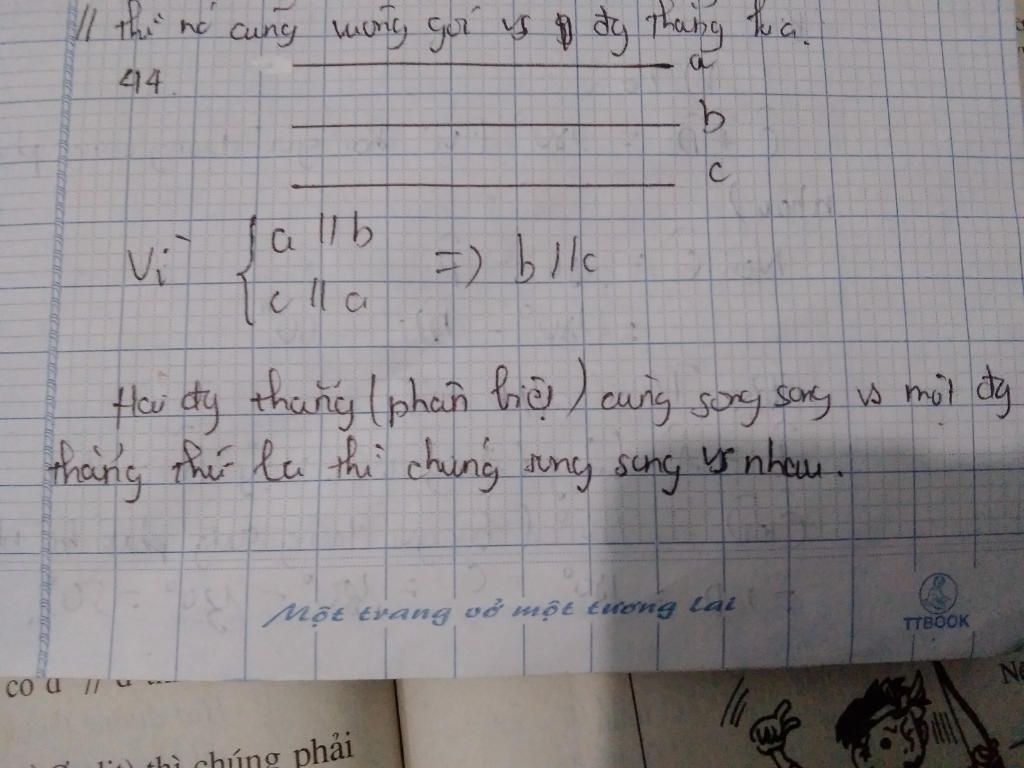 // thì nó cũng vuông gói vs đg thẳng kia.
44.
a
b
c
Vì { a // b => b // c
c // a
Hai đg thẳng (phân biệt) cùng song song vs một đg
thẳng thứ ba thì chúng song song vs nhau.
Một trang vở một tương lai
TTBOOK
có a //
thì chúng phải